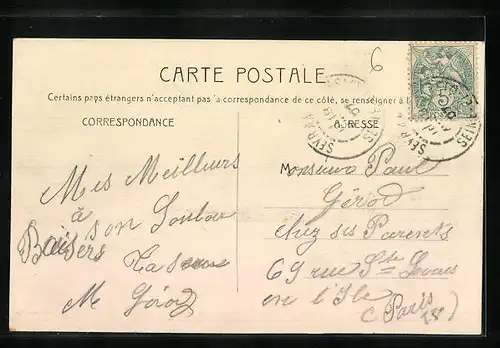 6
CARTE POSTALE
Certains pays étrangers n'acceptant pas la correspondance de ce côté, se renseigner à
CORRESPONDANCE
ADRESSE
Mes Meilleurs
à son
Baisers
M Gérod
Monsieur Paul
Gérod
chez ses Parents
69 rue St Louis
en l'Ile
(Paris)
SEVRAN
SEINE
5